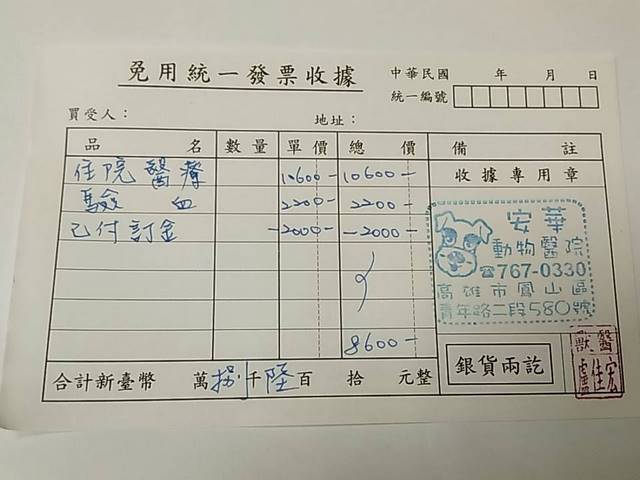 免用統一發票收據
中華民國 年 月 日
統一編號
買受人： 地址：
品名 數量 單價 總價 備註
住院醫療 10600- 10600-
驗血 2200- 2200-
已付訂金 -2000- -2000-
8600-
收據專用章
安華
動物醫院
☎767-0330
高雄市鳳山區
青年路二段580號
銀貨兩訖
獸醫
盧佳宏
合計新臺幣 萬捌千陸百 拾 元整